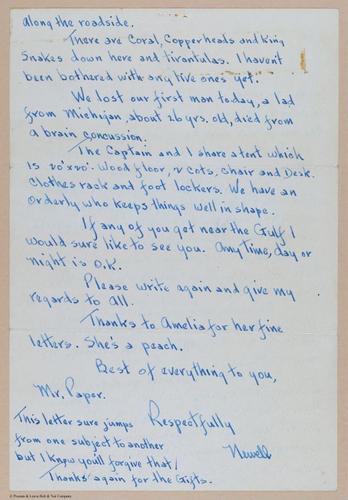 along the roadside.
There are Coral, Copperheads and King
Snakes down here and tirantulas. I haven't
been bothered with any live ones yet.
We lost our first man today, a lad
from Michigan, about 26 yrs. old, died from
a brain concussion.
The Captain and I share a tent which
is 20'x20'. Wood floor, 2 cots, chair and Desk.
Clothes rack and foot lockers. We have an
orderly who keeps things well in shape.
If any of you get near the Gulf I
would sure like to see you. Any time, day or
night is O.K.
Please write again and give my
regards to all.
Thanks to Amelia for her fine
letters. She's a peach.
Best of everything to you,
Mr. Paper.
Respectfully
Newell
This letter sure jumps
from one subject to another
but I know you'll forgive that!
Thanks again for the Gifts.